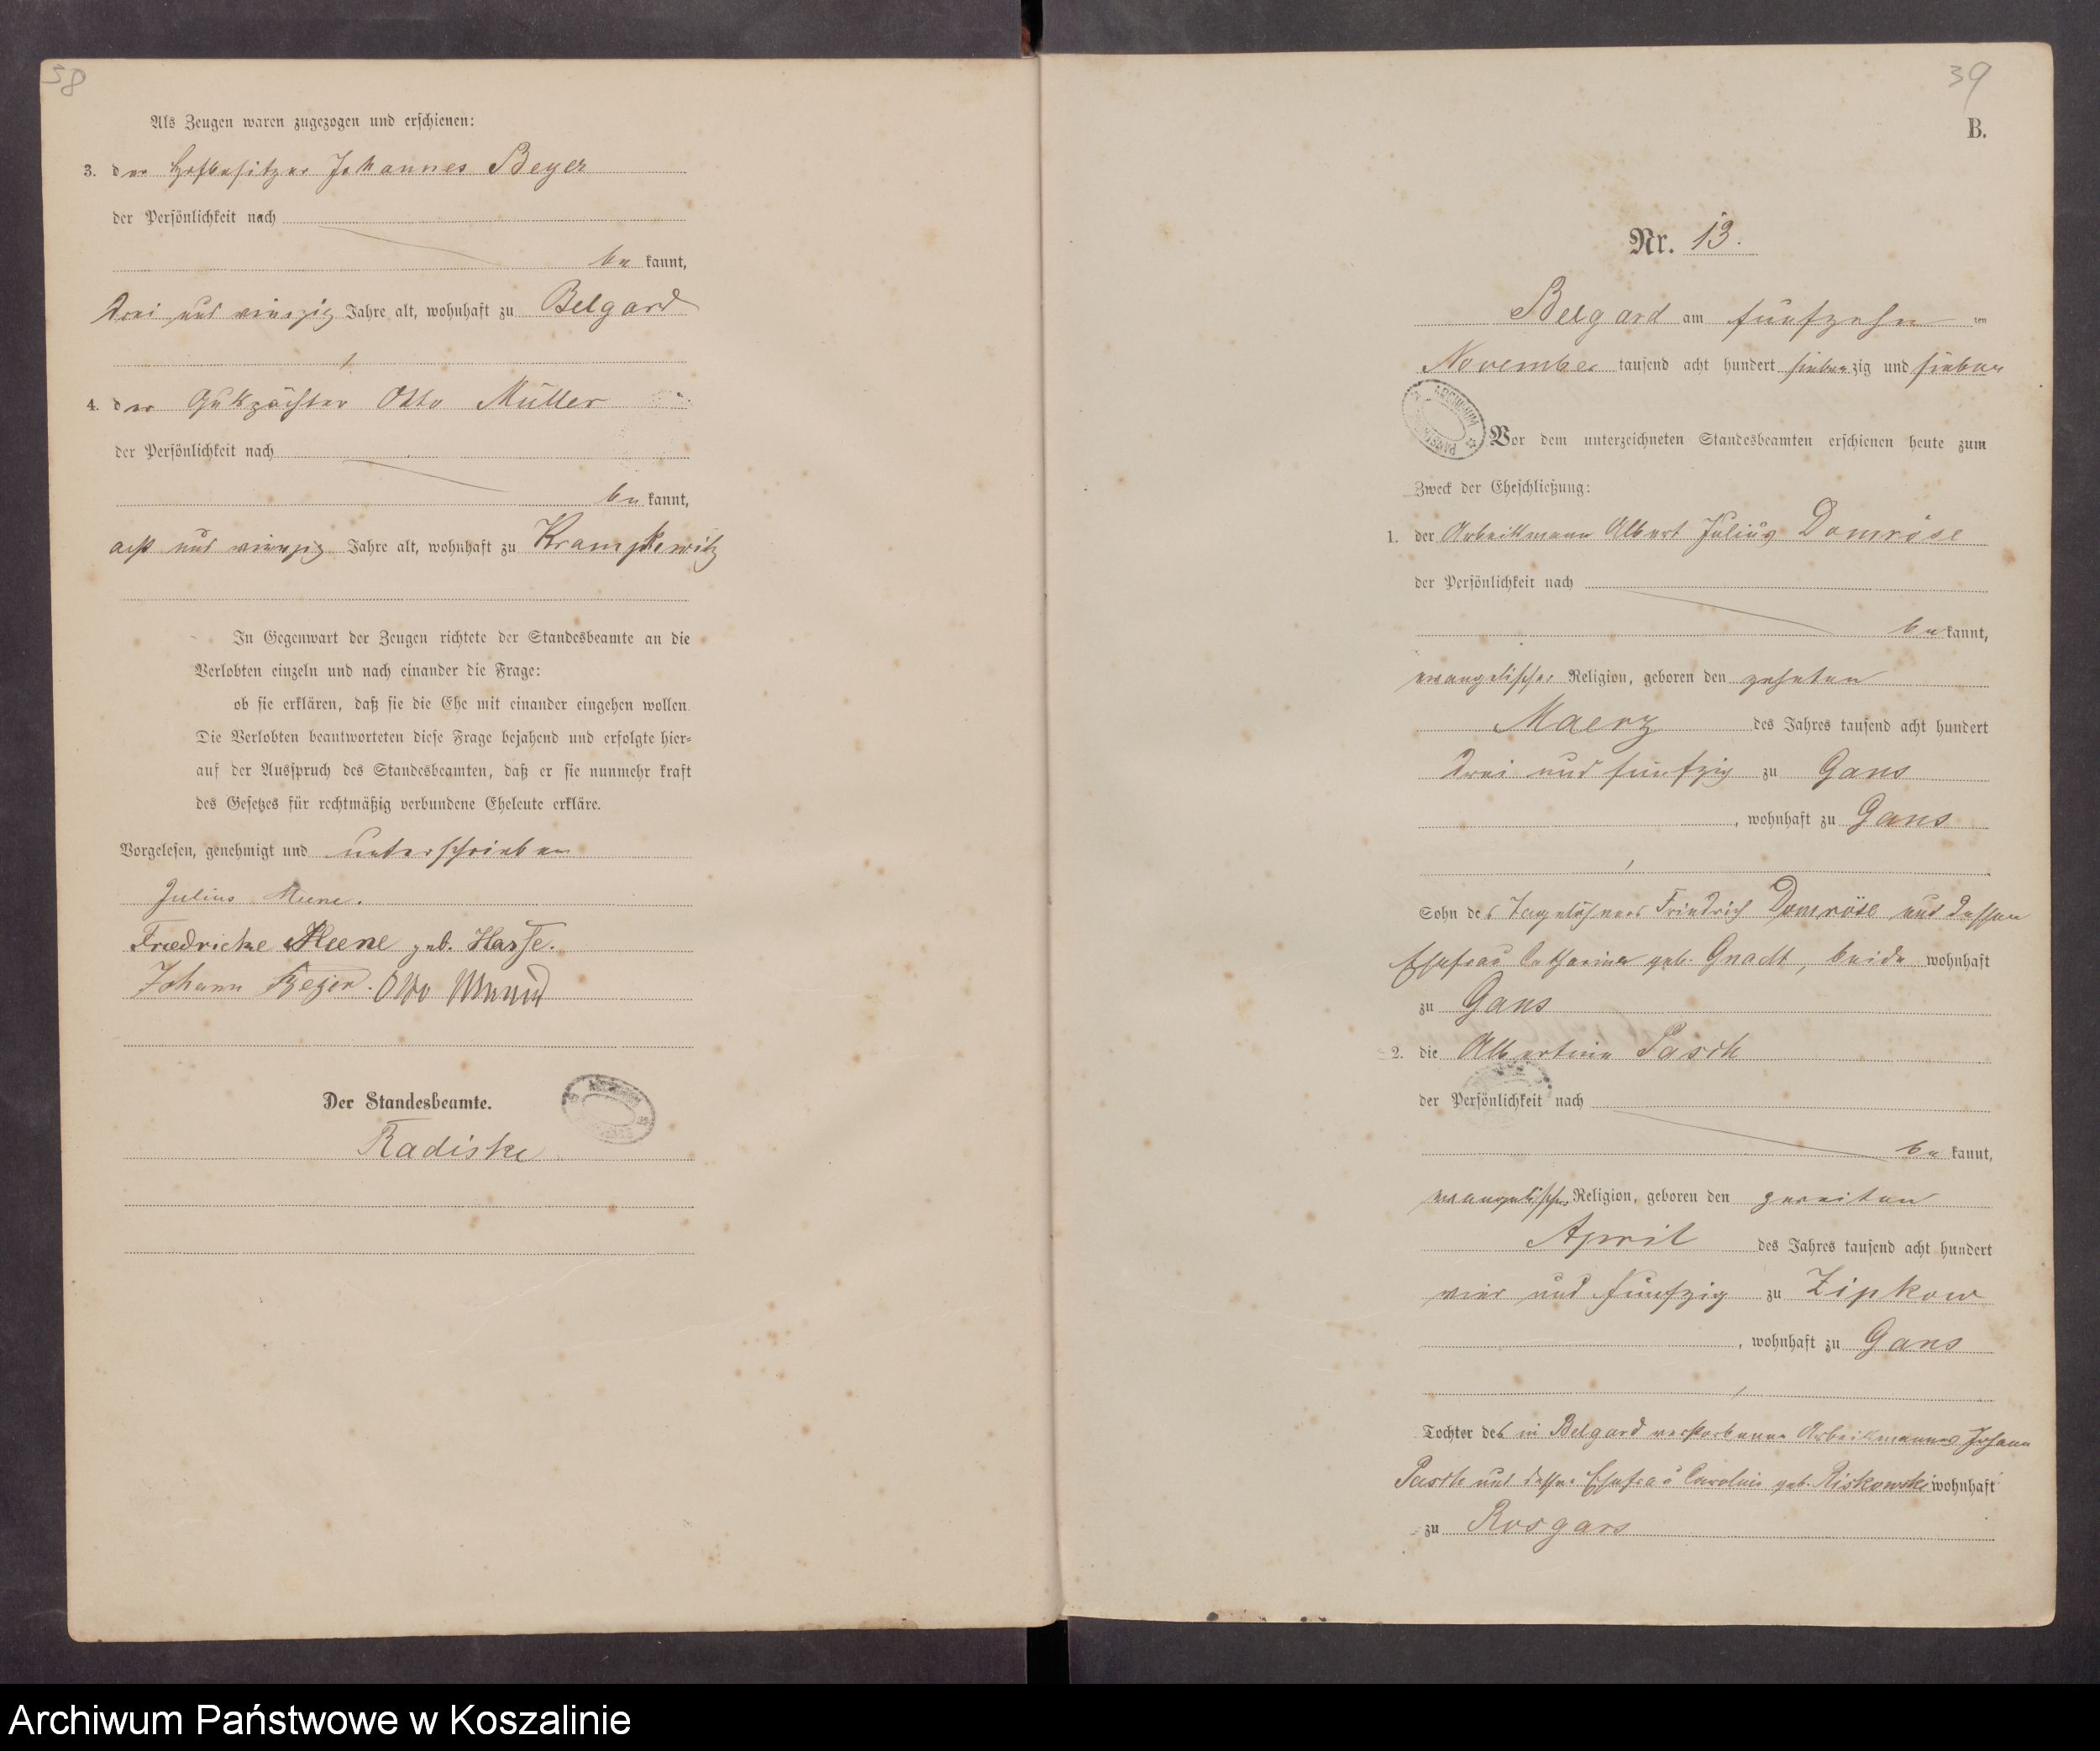 38
Als Zeugen waren zugezogen und erschienen:
3. der Hofbesitzer Johannes Beyer
der Persönlichkeit nach
be kannt,
drei und vierzig Jahre alt, wohnhaft zu Belgard
4. der Gutspächter Otto Müller
der Persönlichkeit nach
be kannt,
acht und vierzig Jahre alt, wohnhaft zu Krampkewitz
In Gegenwart der Zeugen richtete der Standesbeamte an die
Verlobten einzeln und nach einander die Frage:
ob sie erklären, daß sie die Ehe mit einander eingehen wollen.
Die Verlobten beantworteten diese Frage bejahend und erfolgte hier-
auf der Ausspruch des Standesbeamten, daß er sie nunmehr kraft
des Gesetzes für rechtmäßig verbundene Eheleute erkläre.
Vorgelesen, genehmigt und unterschrieben
Julius
Friedricke geb. Hasse.
Johann Beyer. Otto
Der Standesbeamte.
Radiske
39
B.
Nr. 13.
Belgard am fünfzehn ten
November tausend acht hundert siebenzig und sieben
Vor dem unterzeichneten Standesbeamten erschienen heute zum
Zweck der Eheschließung:
1. der Arbeitsmann Albert Julius Domröse
der Persönlichkeit nach
be kannt,
evangelischer Religion, geboren den zehnten
Maerz des Jahres tausend acht hundert
drei und fünfzig zu Gans
, wohnhaft zu Gans
Sohn des Tagelöhners Friedrich Domröse und dessen
Ehefrau Catharina geb. Gnadt, beide wohnhaft
zu Gans
2. die Albertine Pasch
der Persönlichkeit nach
be kannt,
evangelischer Religion, geboren den zweiten
April des Jahres tausend acht hundert
vier und fünfzig zu Zipkow
, wohnhaft zu Gans
Tochter des in Belgard verstorbenen Arbeitsmannes Johann
Pasch und dessen Ehefrau Caroline geb. Piskowski wohnhaft
zu Rosgars
Archiwum Państwowe w Koszalinie